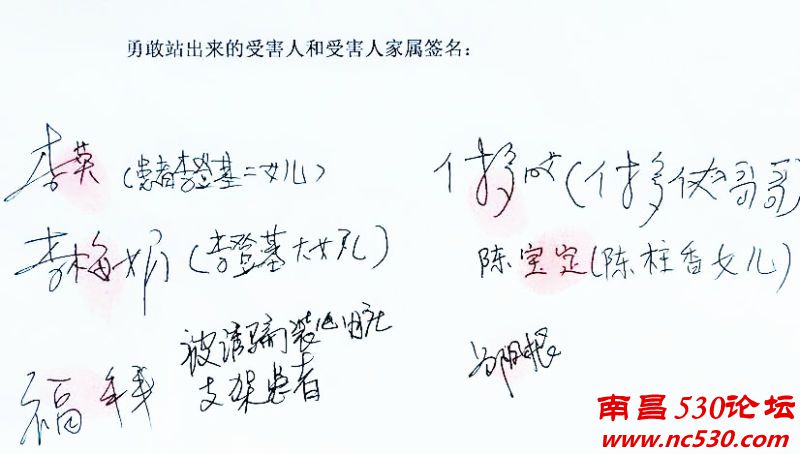 勇敢站出来的受害人和受害人家属签名:
李英(患者李登基二女儿)
李梅娟(李登基大女儿)
哥哥)
陈宝定(陈柱香女儿)
被诱骗装心脏
支架患者
福
根
南昌530论坛
www.nc530.com